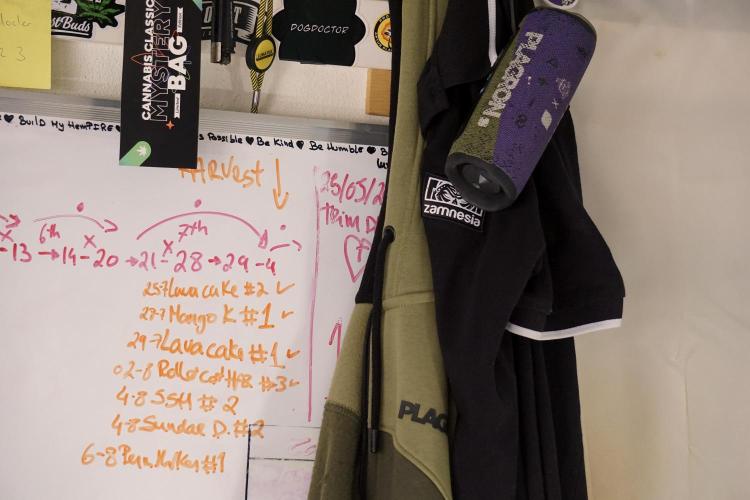 3
DOGDOCTOR
CANNABIS CLASSICS
MYSTERY
BAG
PLAGRON
♥ Build My HempIRE ♥
s Possible ♥ Be Kind ♥ Be Humble ♥ B
HARvest ↓
25/05/2
trim D
6th
7th
-13 → 14 - 20 → 21 - 28 → 29 - 4
25-7 Lava cake #2 ✓
27-7 Mango K #1 ✓
29-7 Lava cake #1 ✓
4-8 SSH # 2
4-8 Sundae D. #2
6-8 #1
zamnesia
PLAG